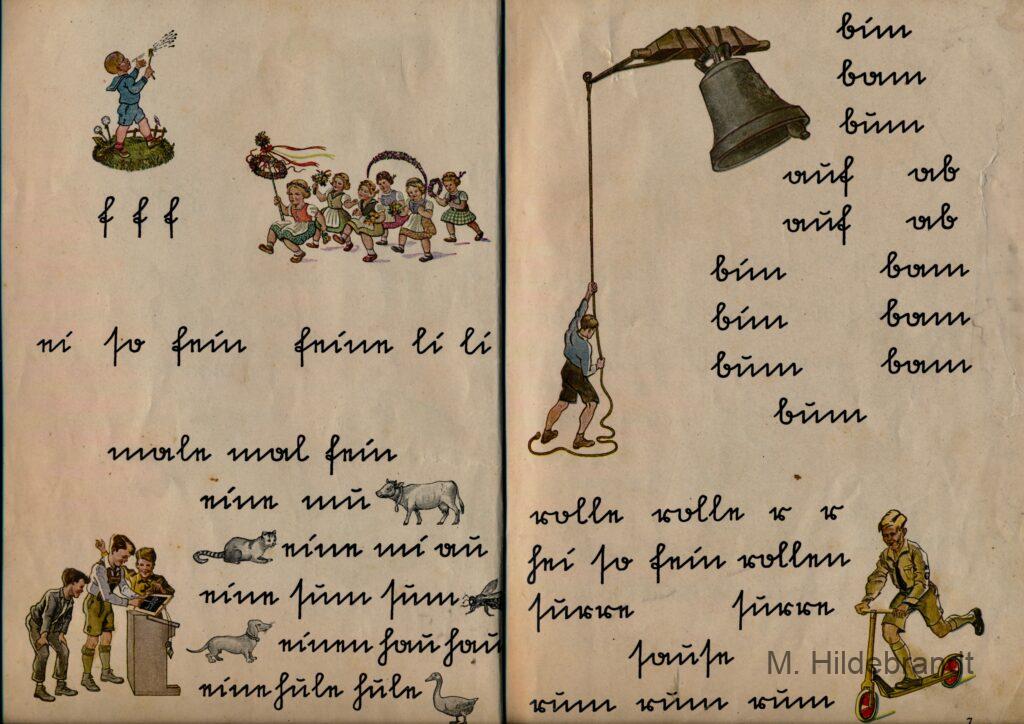 f f f
ei so fein feine li li
male mal fein
eine mu
eine mi au
eine sum sum
einen hau hau
eine hule hule
bim
bam
bum
auf ab
auf ab
bim bam
bim bam
bum bam
bum
rolle rolle r r
hei so fein rollen
surre surre
sause
rum rum rum
M. Hildebrandt
7